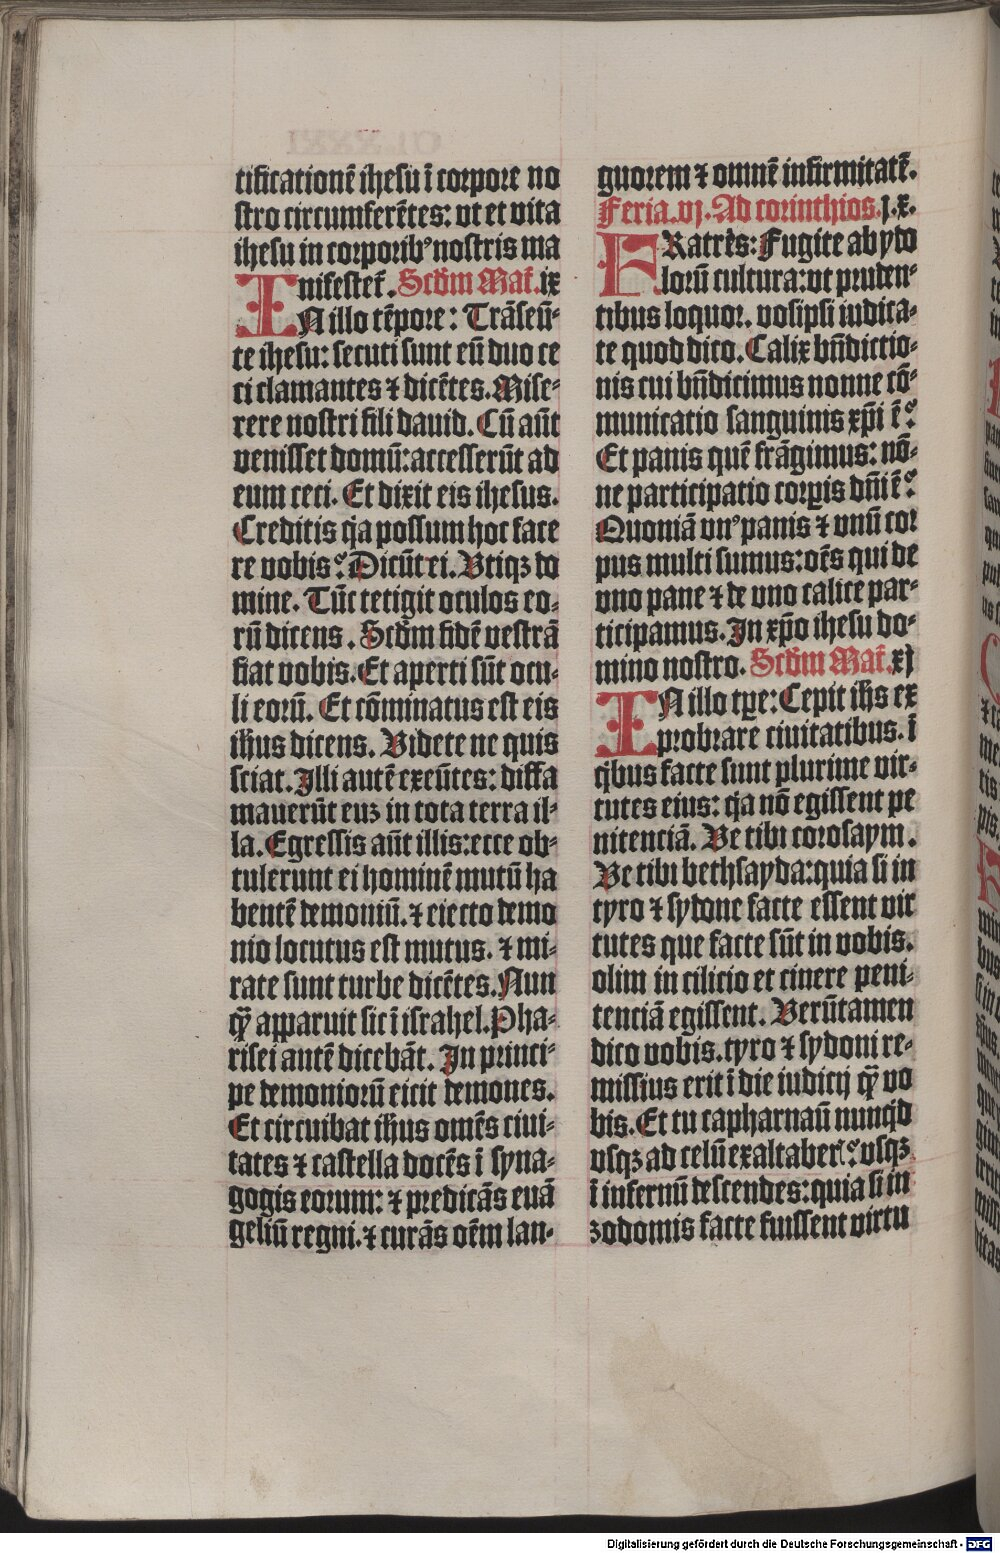 tificationē ihesu ī corpore no
stro circumferētes: vt et vita
ihesu in corporibꝰ nostris ma
nifestet᷑. Scd̄m Mat᷑. ix
IN illo tēpore: Trāseū-
te ihesu: secuti sunt eū duo ce
ci clamantes ⁊ dicētes. Mise-
rere nostri fili dauid. Cū aūt
venisset domū: accesserūt ad
eum ceci. Et dixit eis ihesus.
Creditis q̇a possum hoc face
re vobis? Dicūt ei. Vtiqꝫ do
mine. Tūc tetigit oculos eo-
rū dicens. Scd̄m fidē vestrā
fiat vobis. Et aperti sūt ocu-
li eorū. Et cōminatus est eis
ih̄us dicens. Videte ne quis
sciat. Illi autē exeūtes: diffa
mauerūt euꝫ in tota terra il-
la. Egressis aūt illis: ecce ob-
tulerunt ei hominē mutū ha
bentē demoniū. ⁊ eiecto demo
nio locutus est mutus. ⁊ mi-
rate sunt turbe dicētes. Nun
qꝫ̄ apparuit sic ī israhel. Pha-
risei autē dicebāt. In princi-
pe demoniorū eicit demones.
Et circuibat ih̄us omēs ciui-
tates ⁊ castella docēs ī syna-
gogis eorum: ⁊ predicās euā
geliū regni. ⁊ curās oēm lan-
guorem ⁊ omnē infirmitatē.
Feria. vj. Ad corinthios. j. x.
FRatrēs: Fugite ab ydo
lorū cultura: vt pruden-
tibus loquor. vosipsi iudica-
te quod dico. Calix bn̄dictio-
nis cui bn̄dicimus nonne cō-
municatio sanguinis xp̄i ē?
Et panis quē frāgimus: nō-
ne participatio corꝑis dn̄i ē?
Quoniā vnꝰ panis ⁊ vnū cor
pus multi sumus: oēs qui de
vno pane ⁊ de vno calice par-
ticipamus. In xp̄o ihesu do-
mino nostro. Scd̄m Mat᷑. xj
IN illo tꝑe: Cepit ih̄s ex
probrare ciuitatibus. ī
q̇bus facte sunt plurime vir-
tutes eius: q̇a nō egissent pe
nitenciā. Ve tibi corosaym.
Ve tibi bethsayda: quia si in
tyro ⁊ sydone facte essent vir
tutes que facte sūt in vobis.
olim in cilicio et cinere peni-
tenciā egissent. Verūtamen
dico vobis. tyro ⁊ sydoni re-
missius erit ī die iudicij qꝫ̄ vo
bis. Et tu capharnaū nunq̇d
vsqꝫ ad celū exaltaber᷑? vsqꝫ
ī infernū descendes: quia si in
zodomis facte fuissent virtu
Digitalisierung gefördert durch die Deutsche Forschungsgemeinschaft - DFG